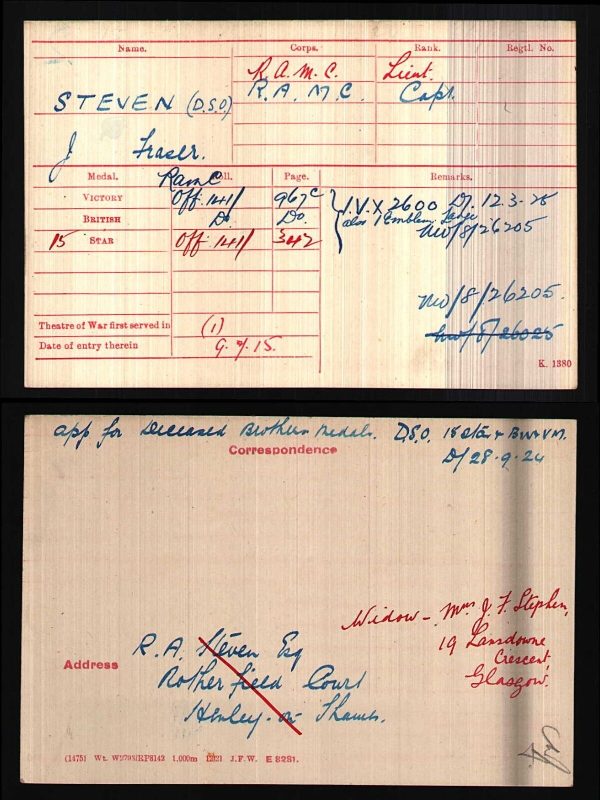 Name.
Corps.
Rank.
Regtl. No.
R.A.M.C.
Lieut.
STEVEN (D.S.O)
R.A.M.C.
Capt.
J Fraser.
Medal.
Roll.
Page.
Remarks.
RAMC
VICTORY
Off. 141/
967c
I.V.X 2600 D/. 12.3.25
BRITISH
Do
Do.
also 1 Emblem large
NW/8/26205
15 STAR
Off. 141/
342
NW/8/26205.
NW/8/26025
Theatre of War first served in
(1)
Date of entry therein
9.7.15.
K. 1380
App for Deceased Brothers Medals. D.S.O. 15 Star & BW&VM.
D/28.9.24
Correspondence
Widow - Mrs J. F. Stephen,
19 Lansdowne
Crescent
Glasgow.
Address
R.A. Steven Esq
Rotherfield Court
Henley-on Thames.
(1475) Wt. W9793/RP8142 1,000m 12/21 J.F.W. E 8281.